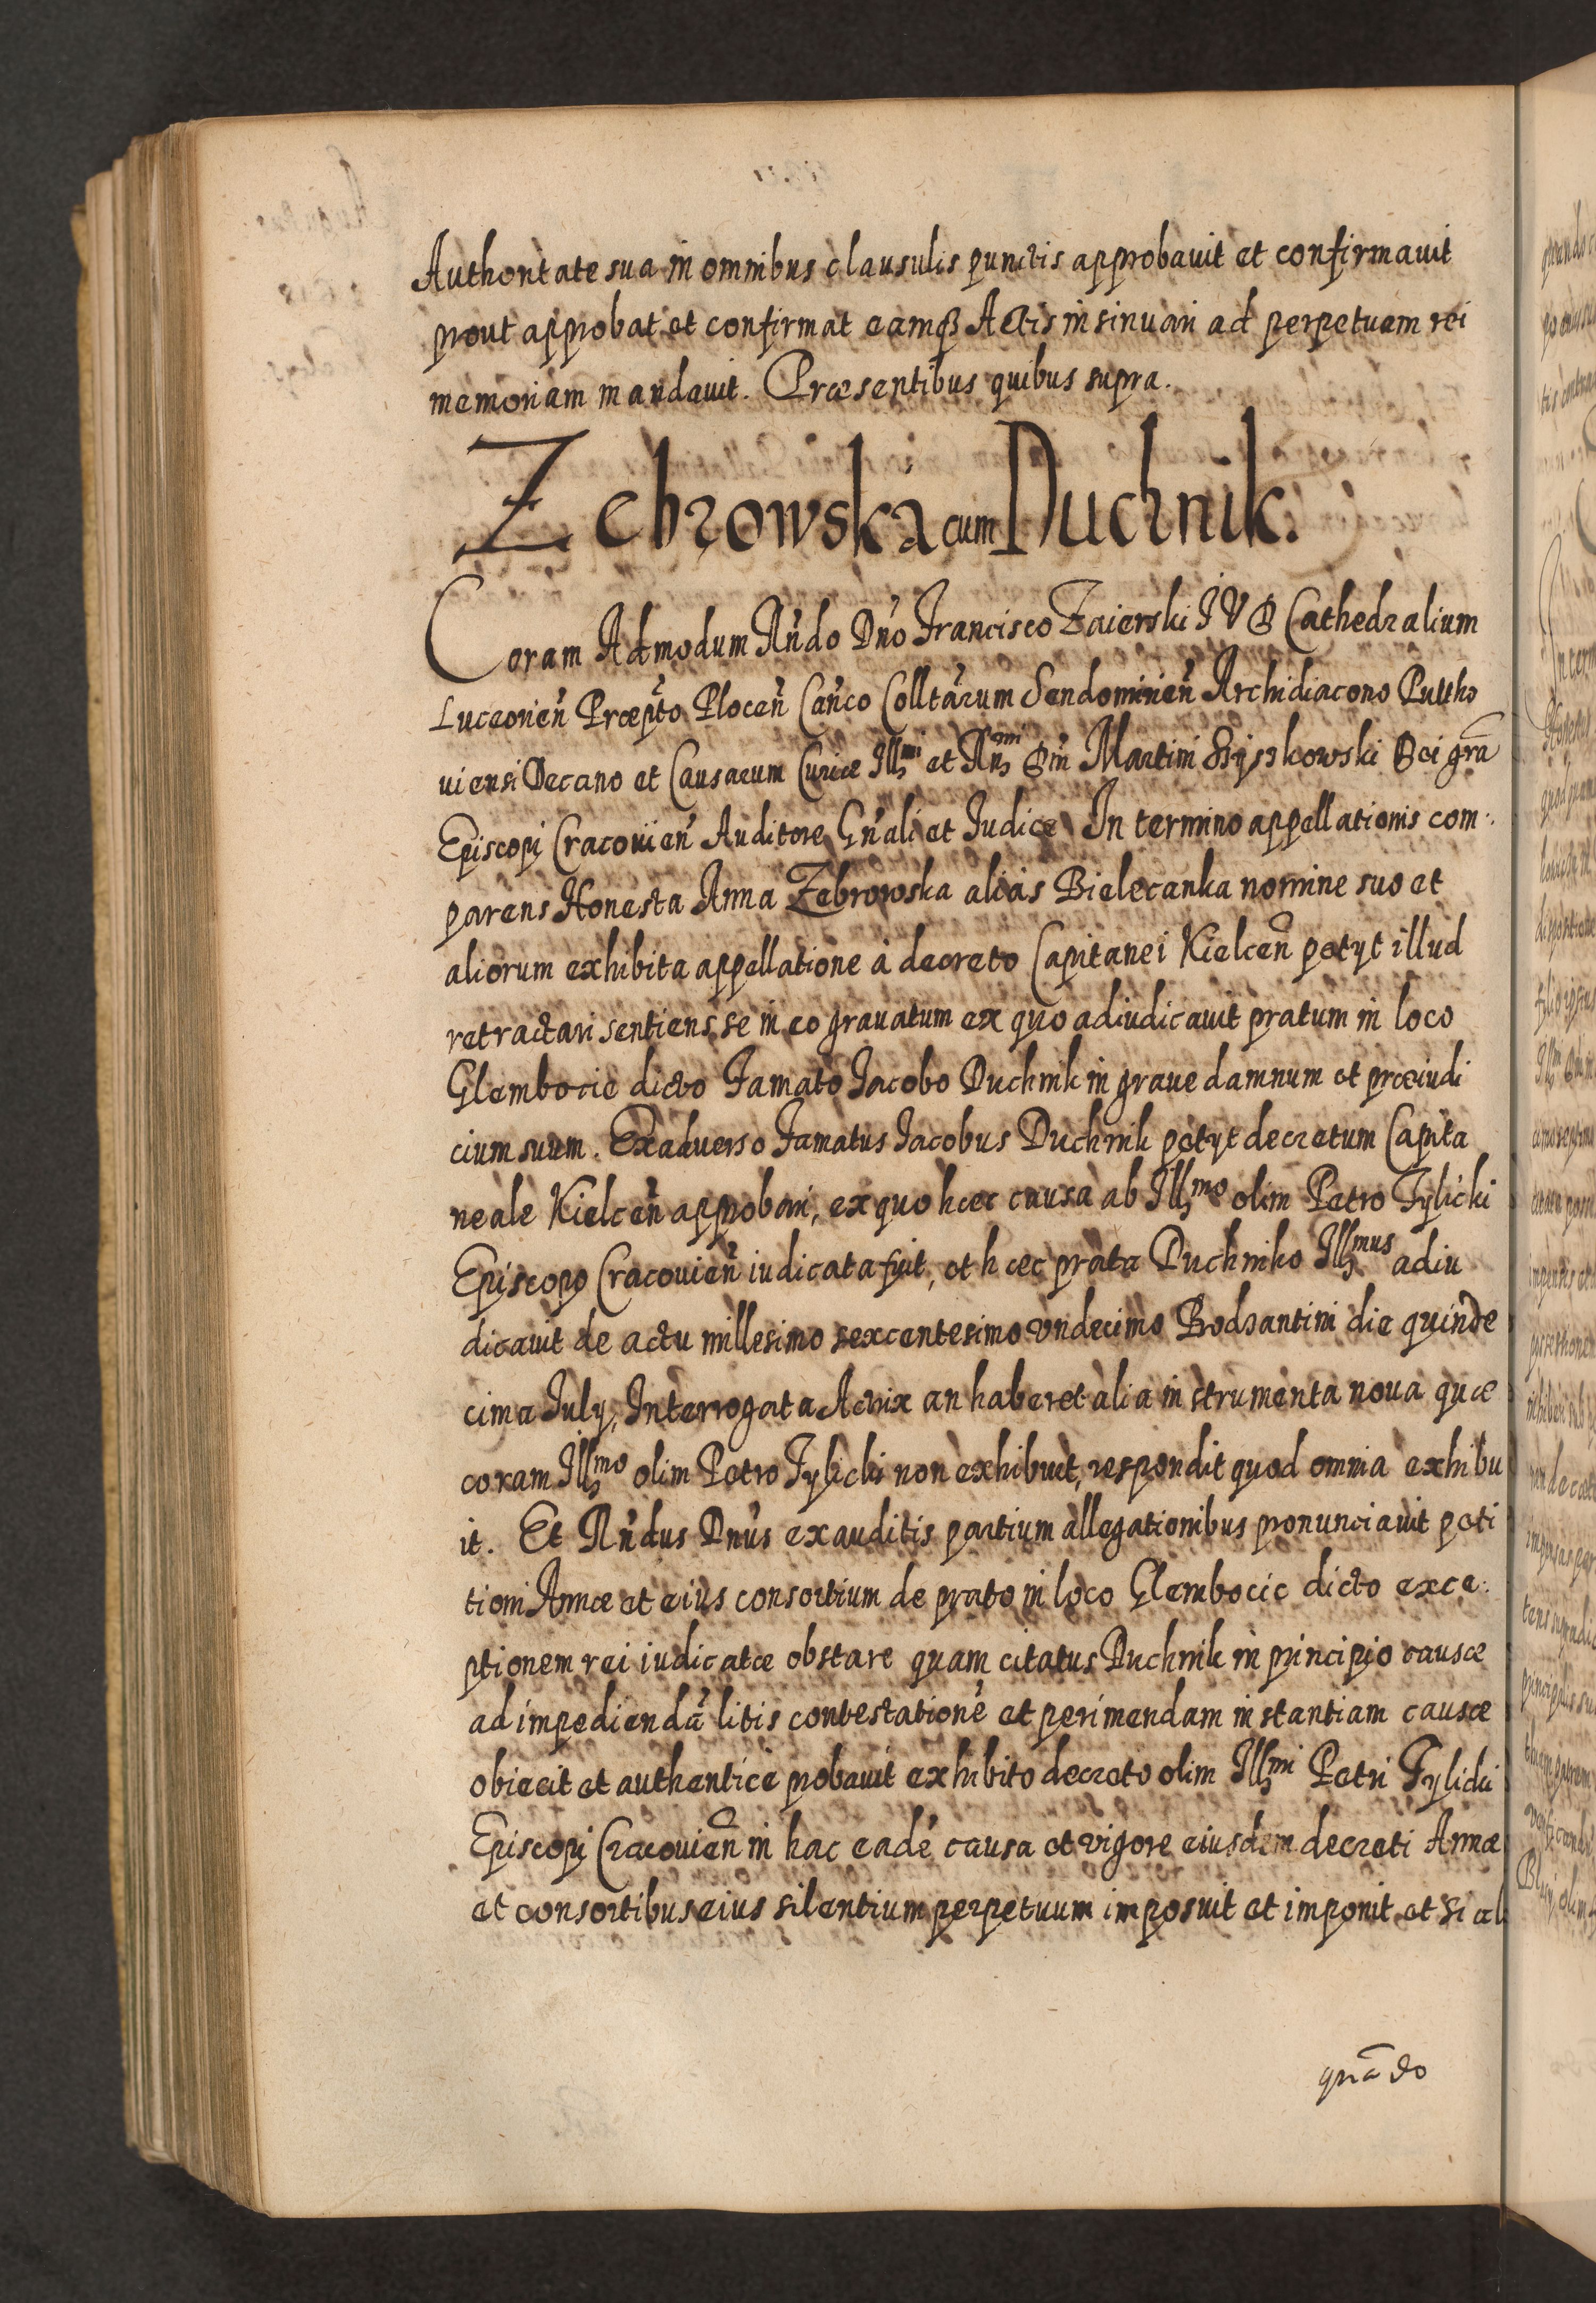 Authoritate sua in omnibus clausulis punctis approbavit et confirmavit
prout approbat et confirmat eamqꝫ Actis insinuari ad perpetuam rei
memoriam mandavit. Præsentibus quibus supra.
Zebrowska cum Duchnik.
Coram Admodum Rñdo Dño Francisco Zaierski I V D Cathedralium
Luceorien̄ Præpto Plocen̄ Cañco Colltārum Sendomirien̄ Archidiacono Pultho
uiensi Decano et Causarum Curiæ Illmi et Rmi Dñi Martini Szyszkowski Dei grā
Episcopi Cracouien̄ Auditore Gñali et Iudice In termino appellationis com:
parens Honesta Anna Zebrowska aliàs Bielecanka nomine suo et
aliorum exhibita appellatione à decreto Capitanei Kielcen̄ petyt illud
retractari sentiens se in eo grauatum ex quo adiudicauit pratum in loco
Glembocie dicto Famato Iacobo Duchnik in graue damnum et præiudi
cium suum. Ex aduerso Famatus Iacobus Duchnik petyt decretum Capita
neale Kielcen̄ approbari, ex quo hæc causa ab Illmo olim Petro Tylicki
Episcopo Cracouien̄ iudicata fuit, et hæc prata Duchniko Illmus adiu
dicauit de actu millesimo sexcentesimo vndecimo Bodzantini die quinde
cima Iuly, Interrogata Actrix an haberet alia instrumenta noua quæ
coram Illmo olim Petro Tylicki non exhibuit, respondit quod omnia exhibu
it. Et Rñdus Dñus exauditis partium allegationibus pronunciauit peti
tioni Annæ et eius consortium de prato in loco Glembocic dicto exce:
ptionem rei iudicatæ obstare quam citatus Duchnik in principio causæ
ad impediendā litis contestationē et perimendam instantiam causæ
obiecit et authenticè probauit exhibito decreto olim Illmi Petri Tylicki
Episcopi Cracouien̄ in hac eadē causa et vigore eiusdem decreti Annæ
et consortibus eius silentium perpetuum imposuit et imponit et si al
quādo